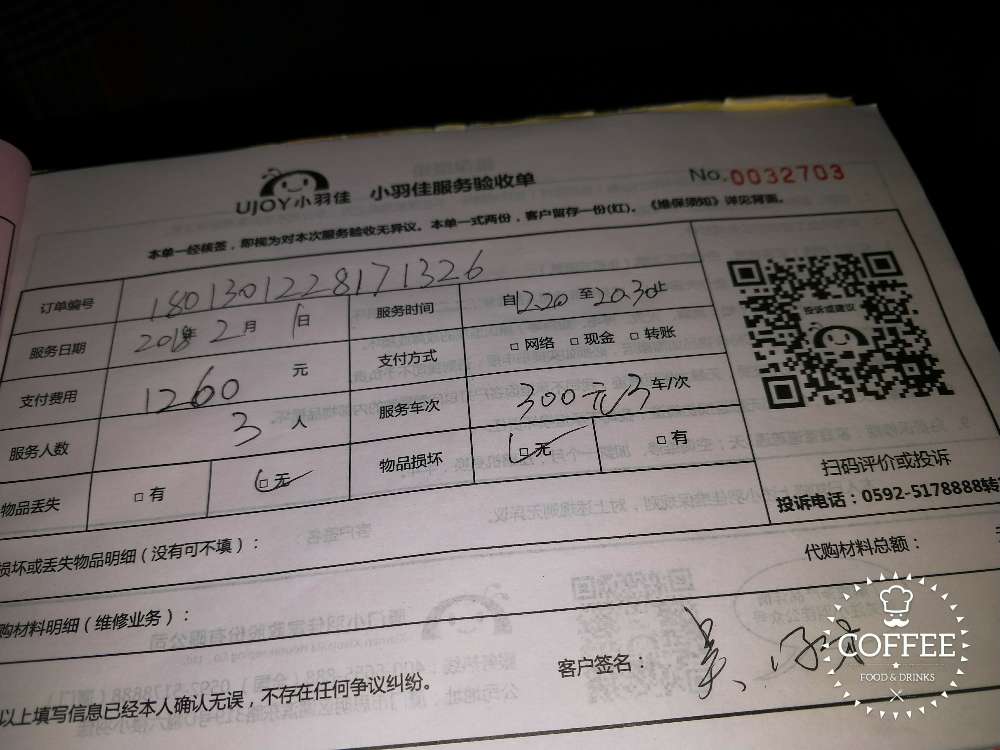 UJOY小羽佳 小羽佳服务验收单 No.0032703
本单一经核签，即视为对本次服务验收无异议。本单一式两份，客户留存一份(红)。《维保须知》详见背面。
订单编号 180130122817 1326
服务日期 2018年 2月 1日 服务时间 自12.20至20.30止
支付费用 1260 元 支付方式 □网络 □现金 □转账
服务人数 3 人 服务车次 300元/3 车/次
物品丢失 □有 □无 物品损坏 □无 □有
投诉或建议
扫码评价或投诉
投诉电话：0592-5178888转
损坏或丢失物品明细（没有可不填）：
代购材料总额：
购材料明细（维修业务）：
客户签名：
以上填写信息已经本人确认无误，不存在任何争议纠纷。
COFFEE
FOOD & DRINKS